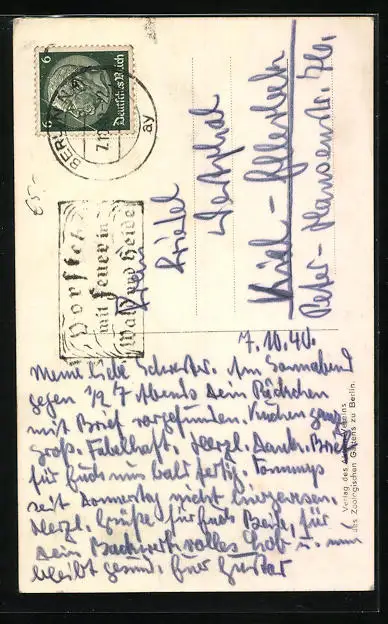 6
Deutsches Reich
6
BERLIN
7.10
ay
65,-
Vorsicht
mit Feuer in
Wald und Heide
Frau
Westphal
Kiel-Ellerbek
Peter-Hansenstr.
7.10.40.
Meine liebe Schwester. Am Sonnabend
gegen 1/2 7 Abends Dein Päckchen
mit Brief vorgefunden. Kuchen ganz
groß. Fabelhaft. Herzl. Dank. Brief
für Euch bald fertig. Tommys
seit Donnerstag nicht hiergewesen.
Herzl. Grüße für Euch Beide, für
Dein Backwerk volles Lob u. nun
bleibt gesund. Euer Gustav
Verlag des Vereins
des Zoologischen Gartens zu Berlin.